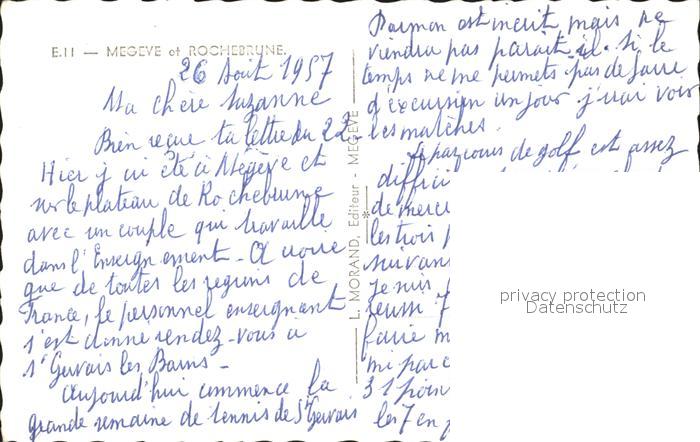 E.11 — MEGEVE et ROCHEBRUNE.
26 Août 1957
Ma chère Suzanne
Bien reçue ta lettre du 22.
Hier j'ai été à Mégève et
sur le plateau de Rochebrune
avec un couple qui travaille
dans l'Enseignement - A croire
que de toutes les regions de
France, le personnel enseignant
s'est donné rendez-vous à
St Gervais les Bains -
Aujourd'hui commence la
grande semaine de tennis de St Gervais
L. MORAND, Editeur - MEGEVE
est inscrit mais ne
viendra pas parait il. Si le
temps ne me permets pas de faire
d'excursion un jour j'irai voir
les matches.
Le parcours de golf est assez
diffici
de merc
les trois p
suivan
je suis
reussi 7
faire m
mi par c
31 poin
les 7 en p
privacy protection
Datenschutz